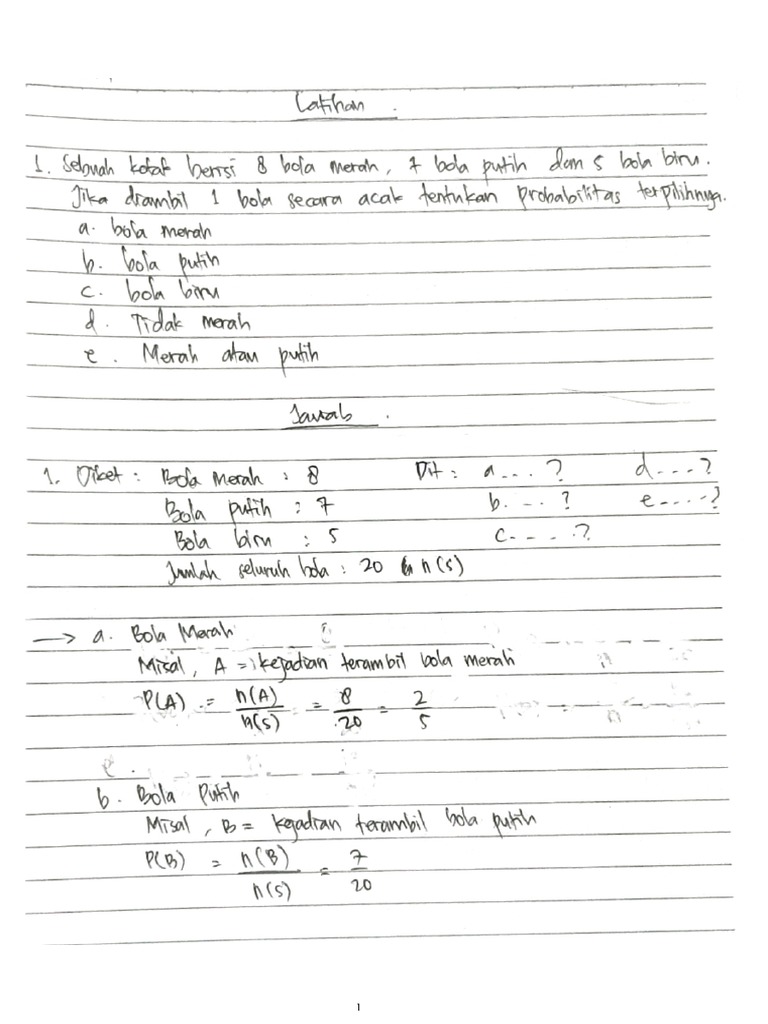 Latihan .
1. Sebuah kotak berisi 8 bola merah, 7 bola putih dan 5 bola biru.
Jika diambil 1 bola secara acak tentukan probabilitas terpilihnya.
a. bola merah
b. bola putih
c. bola biru
d. Tidak merah
e. Merah atau putih
Jawab .
1. Diket : Bola Merah : 8 Dit : a ... ? d ... ?
Bola putih : 7 b. ... ? e .... ?
Bola biru : 5 c. ... ?
Jumlah seluruh bola : 20 n(s)
→ a. Bola Merah
Misal, A = kejadian terambil bola merah
P(A) = n(A)/n(s) = 8/20 = 2/5
b. Bola Putih
Misal, B = kejadian terambil bola putih
P(B) = n(B)/n(s) = 7/20
1